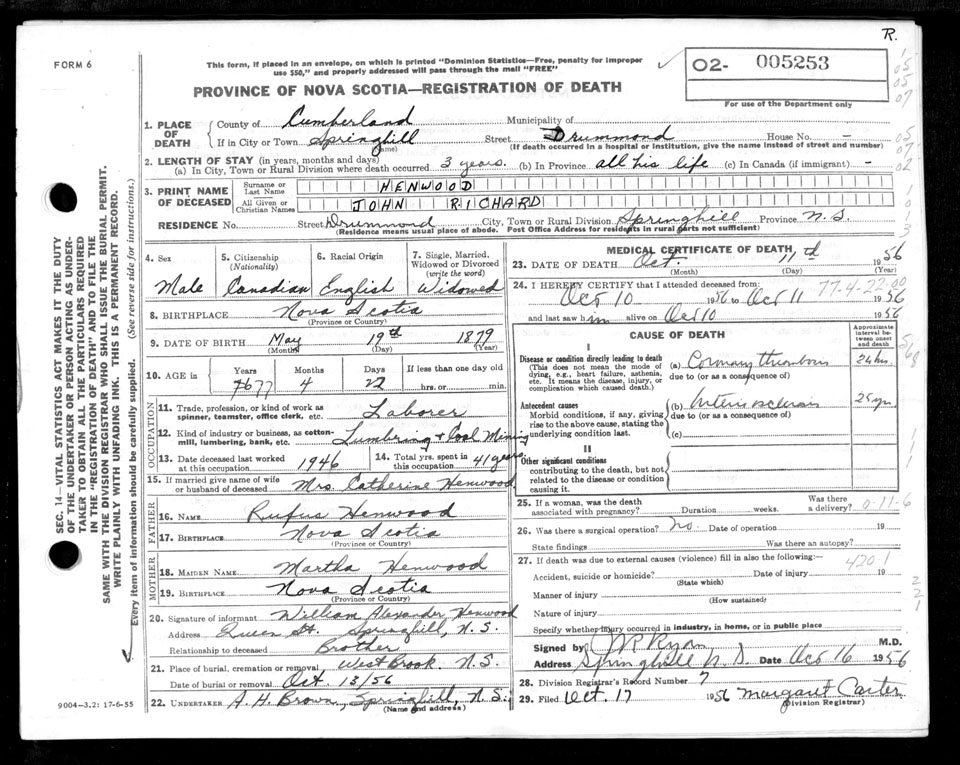 R.
FORM 6
This form, if placed in an envelope, on which is printed "Dominion Statistics—Free, penalty for improper
use $50," and properly addressed will pass through the mail "FREE"
02- 005253
For use of the Department only
PROVINCE OF NOVA SCOTIA—REGISTRATION OF DEATH
1. PLACE OF DEATH County of Cumberland Municipality of
If in City or Town Springhill (Name) Street Drummond House No. -
(If death occurred in a hospital or institution, give the name instead of street and number)
2. LENGTH OF STAY (in years, months and days)
(a) In City, Town or Rural Division where death occurred 3 years. (b) In Province all his life (c) In Canada (if immigrant) -
3. PRINT NAME OF DECEASED Surname or Last Name HENWOOD
All Given or Christian Names JOHN RICHARD
RESIDENCE No. Street Drummond City, Town or Rural Division Springhill Province N.S.
(Residence means usual place of abode. Post Office Address for residents in rural parts not sufficient)
4. Sex
Male
5. Citizenship (Nationality)
Canadian
6. Racial Origin
English
7. Single, Married, Widowed or Divorced (write the word)
Widowed
8. BIRTHPLACE Nova Scotia
(Province or Country)
9. DATE OF BIRTH May 19th 1879
(Month) (Day) (Year)
10. AGE in Years Months Days If less than one day old
76 77 4 22 hrs. or min.
OCCUPATION
11. Trade, profession, or kind of work as spinner, teamster, office clerk, etc. Laborer
12. Kind of industry or business, as cotton-mill, lumbering, bank, etc. Lumbring & Coal Mining
13. Date deceased last worked at this occupation 1946
14. Total yrs. spent in this occupation 41 years.
15. If married give name of wife or husband of deceased Mrs. Catherine Henwood
FATHER
16. NAME Rufus Henwood
17. BIRTHPLACE Nova Scotia
(Province or Country)
MOTHER
18. MAIDEN NAME Martha Henwood
19. BIRTHPLACE Nova Scotia
(Province or Country)
20. Signature of informant William Alexander Henwood
Address Queen St. Springhill, N.S.
Relationship to deceased Brother
21. Place of burial, cremation or removal, West Brook. N.S.
Date of burial or removal Oct. 13/56
22. UNDERTAKER A. H. Brown, Springhill, N.S.
(Name and address)
MEDICAL CERTIFICATE OF DEATH
23. DATE OF DEATH Oct. 11th 1956
(Month) (Day) (Year)
24. I HEREBY CERTIFY that I attended deceased from: 77-4-22-00
Oct 10 1956 to Oct 11 1956
and last saw him alive on Oct 10 1956
CAUSE OF DEATH
Approximate interval between onset and death
I
Disease or condition directly leading to death
(This does not mean the mode of dying, e.g., heart failure, asthenia, etc. It means the disease, injury, or complication which caused death.)
(a) Coronary thrombosis 24 hrs.
due to (or as a consequence of)
Antecedent causes
Morbid conditions, if any, giving rise to the above cause, stating the underlying condition last.
(b) Arteriosclerosis 25 yrs.
due to (or as a consequence of)
(c)
II
Other significant conditions
contributing to the death, but not related to the disease or condition causing it.
25. If a woman, was the death associated with pregnancy? Duration weeks. Was there a delivery? 0-11-6
26. Was there a surgical operation? no. Date of operation 19
State findings Was there an autopsy?
27. If death was due to external causes (violence) fill in also the following: 420.1
Accident, suicide or homicide? Date of injury 19
(State which)
Manner of injury
(How sustained)
Nature of injury
Specify whether injury occurred in industry, in home, or in public place
Signed by J R Ryan M.D.
Address Springhill N.S. Date Oct 16 1956
28. Division Registrar's Record Number 7
29. Filed Oct. 17 1956 Margaret Carter
(Division Registrar)
9004-3.2: 17-6-55
SEC. 14—VITAL STATISTICS ACT MAKES IT THE DUTY
OF THE UNDERTAKER OR PERSON ACTING AS UNDER-
TAKER TO OBTAIN ALL THE PARTICULARS REQUIRED
IN THE "REGISTRATION OF DEATH" AND TO FILE THE
SAME WITH THE DIVISION REGISTRAR WHO SHALL ISSUE THE BURIAL PERMIT.
WRITE PLAINLY WITH UNFADING INK. THIS IS A PERMANENT RECORD.
Every item of information should be carefully supplied. (See reverse side for instructions.)